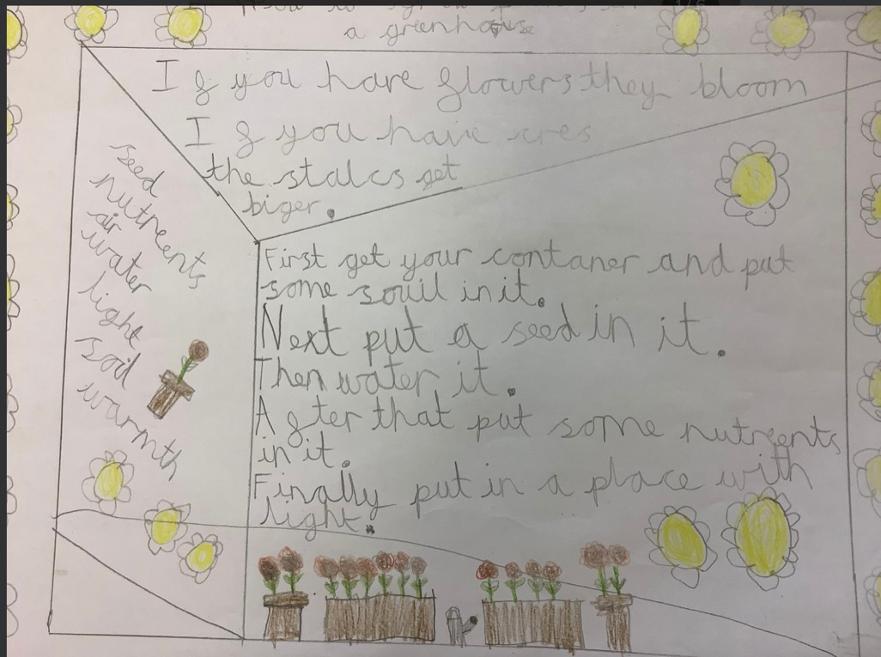 a greenhouse
I g you have glowers they bloom
I g you have cres
the stalcs get
biger.
seed
nutreents
air
water
light
soil
warmth
First get your contaner and put
some souil in it.
Next put a seed in it.
Then water it.
A gter that put some nutreents
in it.
Finally put in a place with
light.